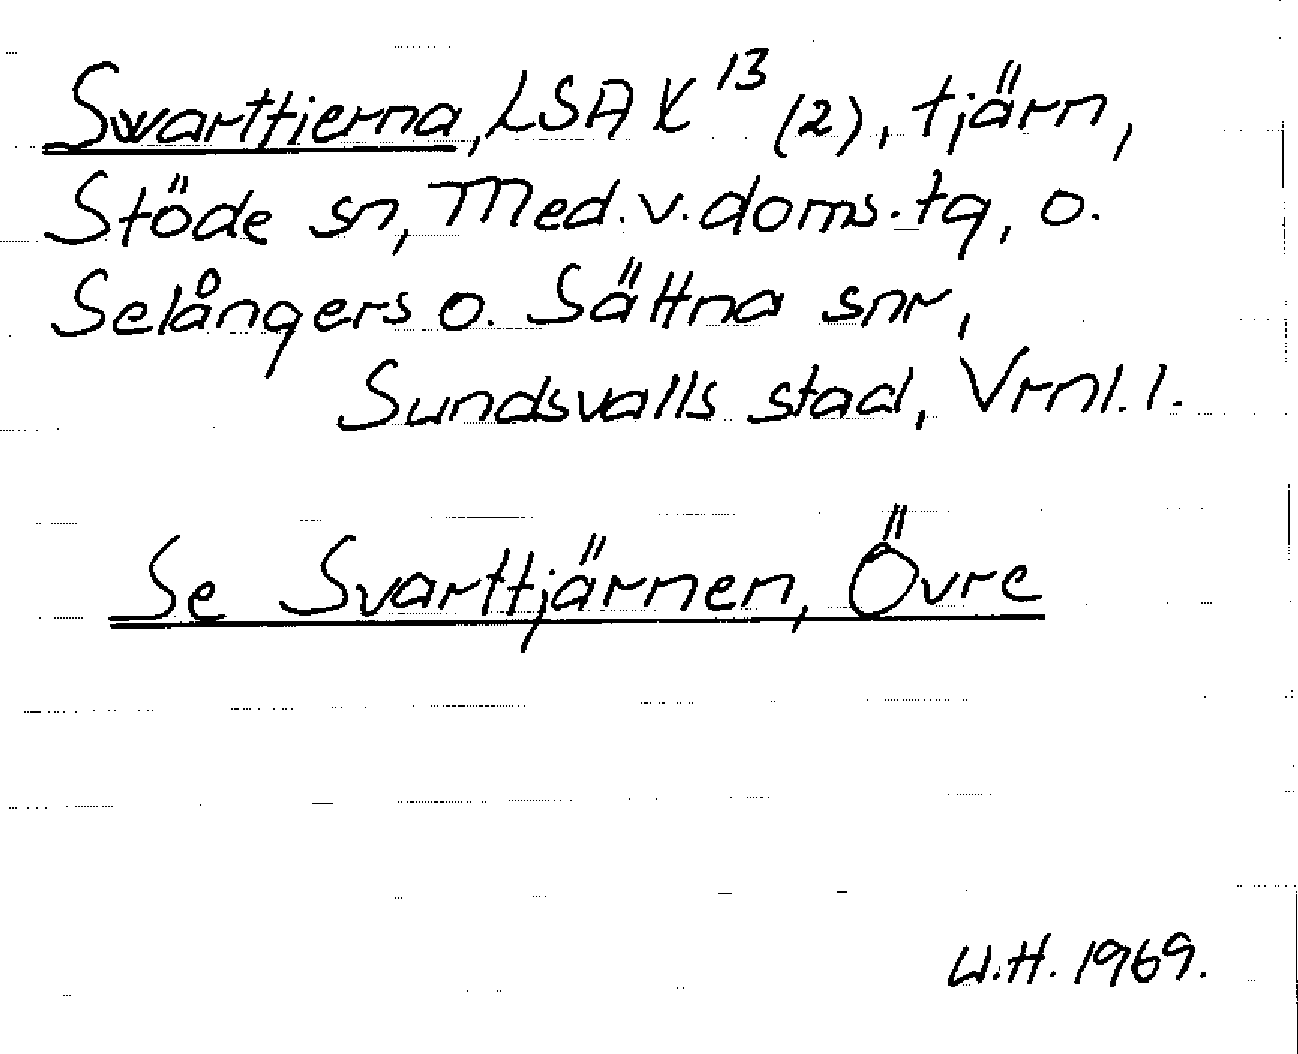 Swarttjerna, LSA K 13 (2), tjärn,
Stöde sn, Med. v. doms. tg, o.
Selångers o. Sättna snr,
Sundsvalls stad, Vrnl. l.
Se Svarttjärnen, Övre
U.H. 1969.